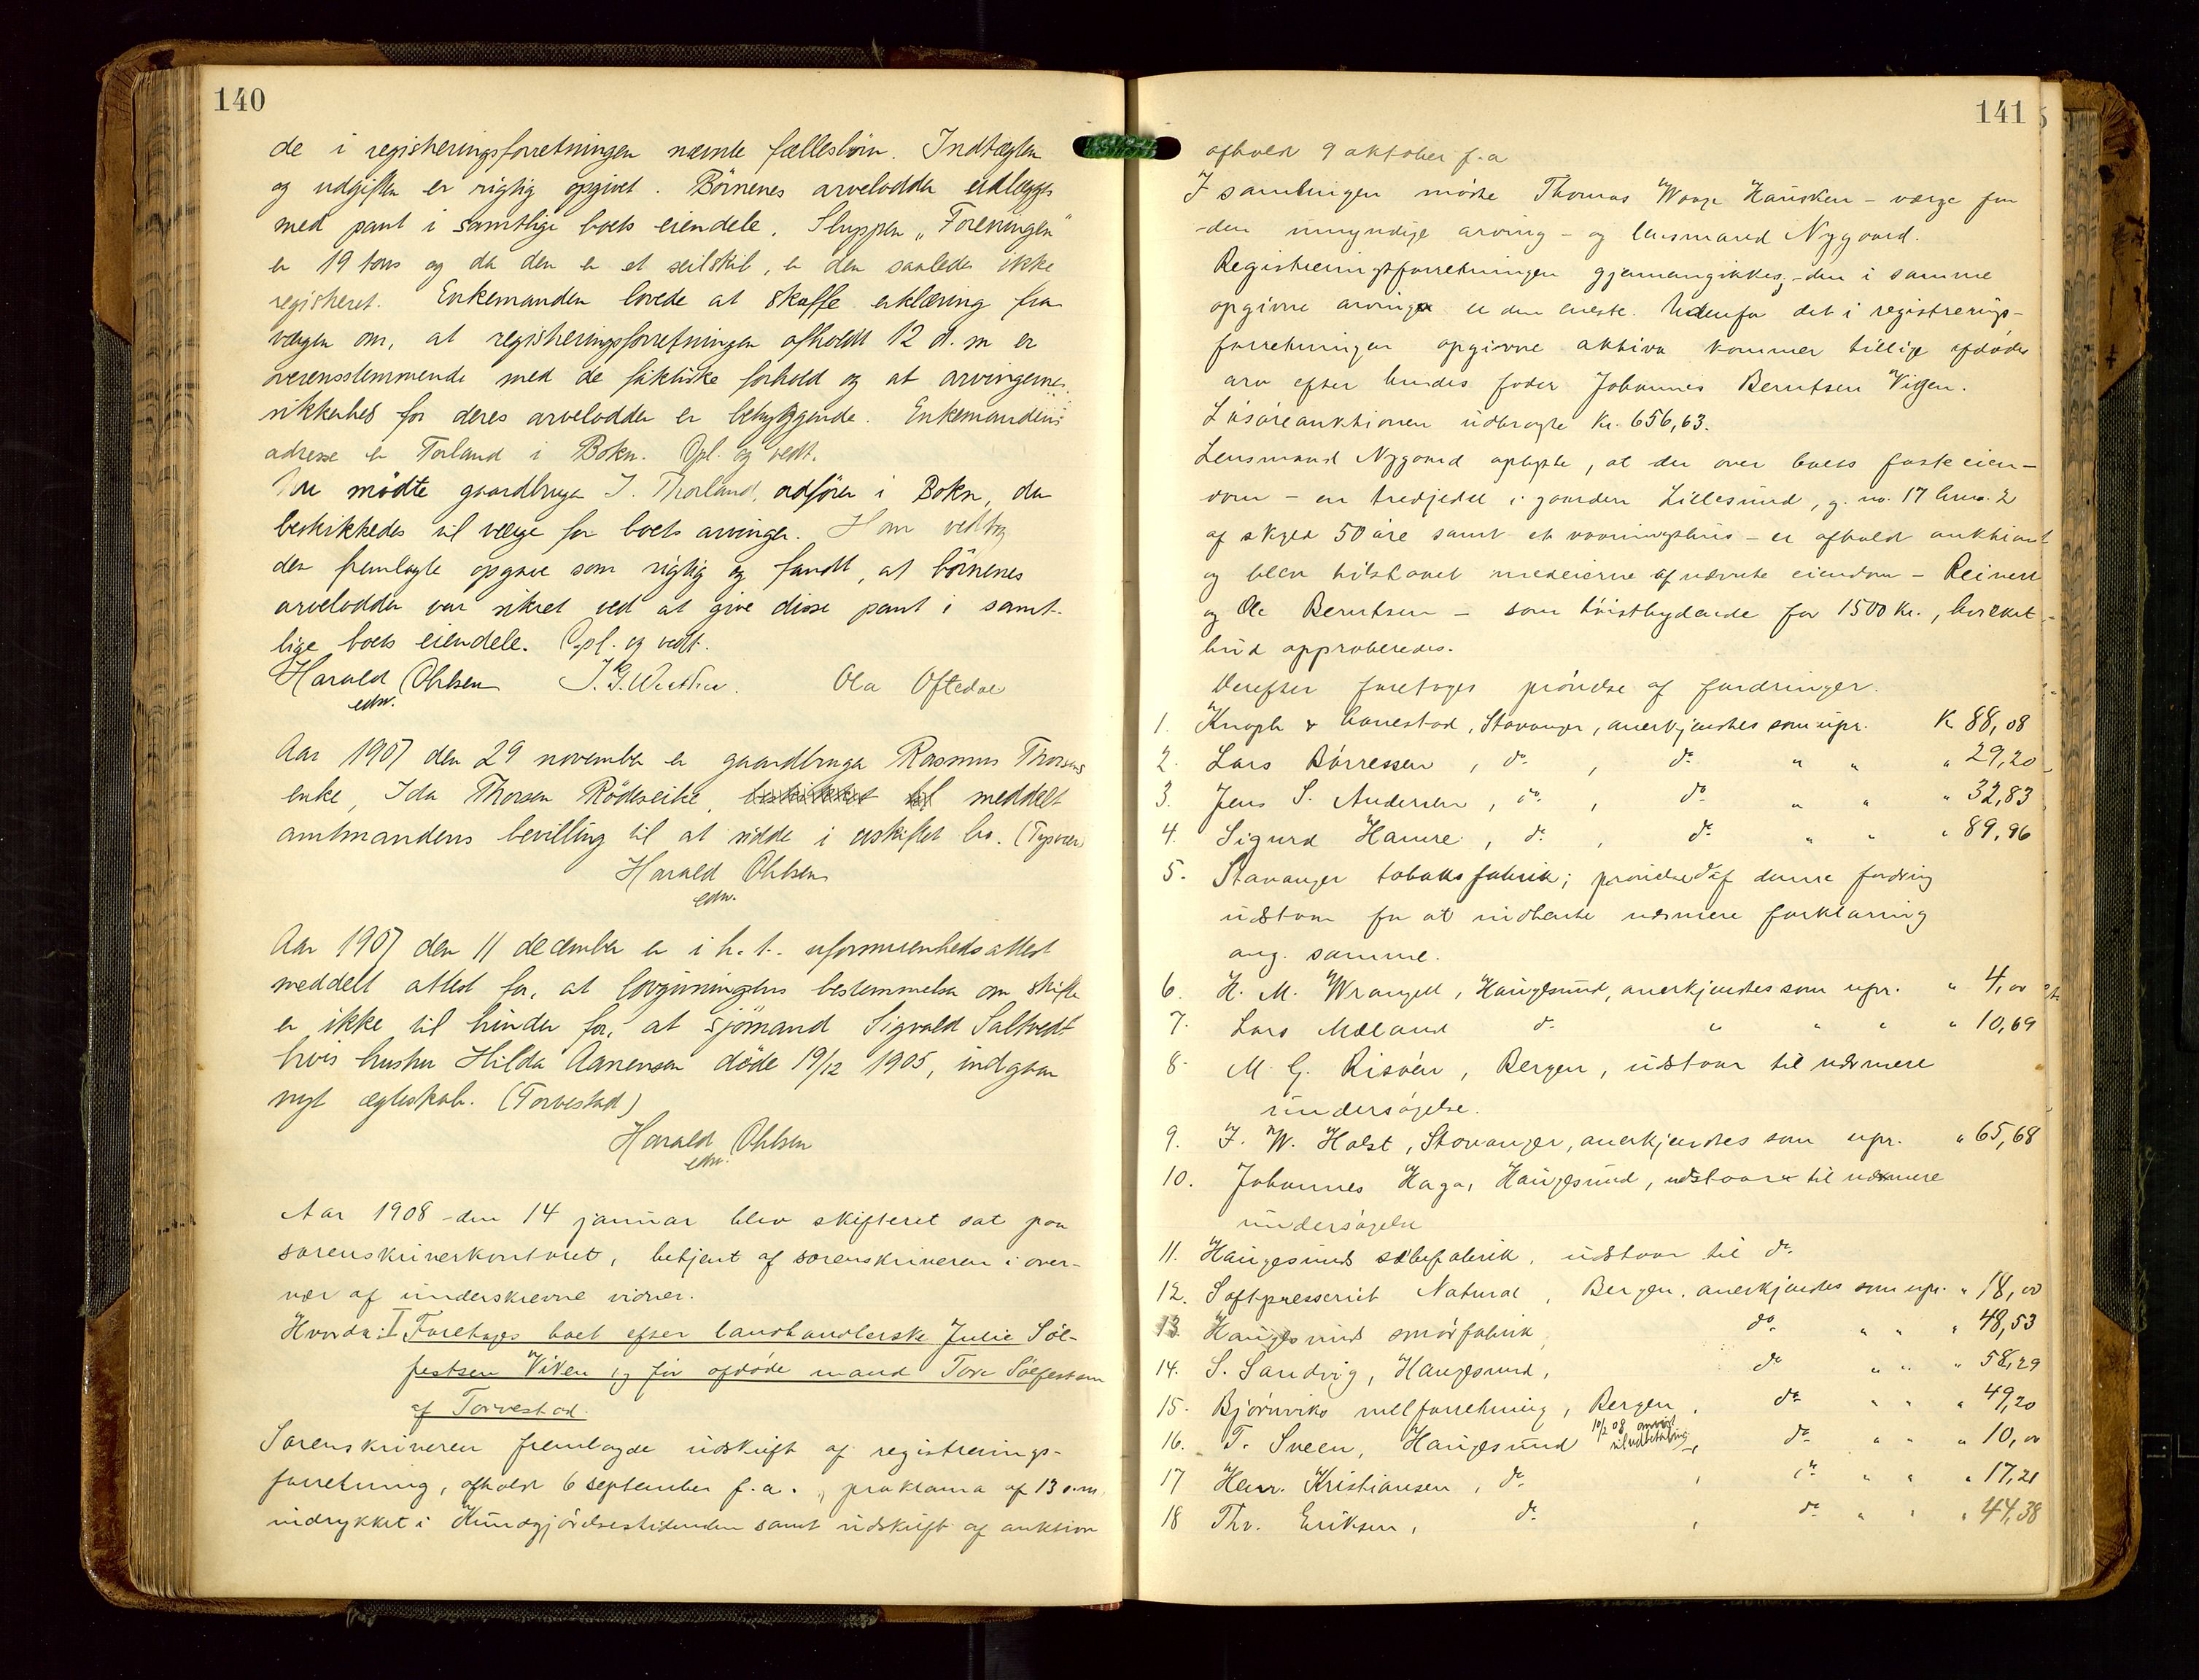 140
de i registreringsforretningen nævnte fællesbörn. Indtægten
og udgiften er rigtig opgivet. Börnenes arvelodder udlægges
med pant i samtlige boets eiendele. Sluppen „Foreningen"
er 19 tons og da den er et seilskib, er den saaledes ikke
registreret. Enkemanden lovede at skaffe erklæring fra
værgen om, at registreringsforretningen afholdt 12 d.m er
overensstemmende med de faktiske forhold og at arvingernes
sikkerhed for deres arvelodder er betryggende. Enkemandens
adresse er Torland i Bokn. Opl. og vedt.
Nu mødte gaardbruger I. Thorland, ordfører i Bokn, der
beskikkedes til værge for boets arvinger. Han vedtog
den fremlagte opgave som rigtig og fandt, at börnenes
arvelodder var sikret ved at give disse pant i samt-
lige boets eiendele. Opl. og vedt.
Harald Ohlsen Ola Oftedal
edv.
Aar 1907 den 29 november er gaardbruger Rasmus Thorsens
enke, Ida Thorsen Rødseike, beskikket til meddelt
amtmandens bevilling til at sidde i uskiftet bo. (Tysvær)
Harald Ohlsen
edv.
Aar 1907 den 11 december er i h. t. uformuenhedsattest
meddelt attest for, at lovgivningens bestemmelser om skifte
er ikke til hinder for, at sjömand Sigvald Saltvedt
hvis hustru Hilda Aanensen døde 19/12 1905, indgaar
nyt ægteskab. (Torvestad)
Harald Ohlsen
edv.
Aar 1908 den 14 januar blev skifteret sat paa
sorenskriverkontoret, betjent af sorenskriveren i over-
vær af underskrevne vidner.
Hvorda: I Foretoges boet efter landhandlerske Julie Söl-
festsen Viken og før afdöde mand Tore Sölfestsen
af Torvestad.
Sorenskriveren fremlagde udskrift af registrerings-
forretning, afholdt 6 september f.a., proklama af 13 s.m.
indrykket i Kundgjörelsestidenden samt udskrift af auktion
141
afholdt 9 oktober f.a
I samlingen mødte Thomas Waage Hausken - værge for
den umyndige arving - og lensmand Nygaard.
Registreringsforretningen gjennemgikkes; den i samme
opgivne arving er den eneste. Udenfor det i registrerings-
forretningen opgivne aktiva kommer tillige afdödes
arv efter hendes fader Johannes Berntsen Vigen.
Lösöreauktionen udbragte Kr. 656,63.
Lensmand Nygaard oplyste, at der over boets faste eien-
dom - en tredjedel i gaarden Lillesund, g. no. 17 bno. 2
af skyld 50 öre samt et vaaningshus - er afholdt auktion
og blev tilslaaet medeierne af nævnte eiendom - Reinert
og Ole Berntsen - som höistbydende for 1500 Kr., hvilket
bud approberedes.
Derefter foretoges prövelse af fordringer.
1. Krogh & Lonestad, Stavanger, anerkjendtes som upr. Kr 88,08
2. Lars Børressen, do, do " " " 29,20
3. Jens S. Andersen, do, do " " " 32,83
4. Sigurd Hamre, do, do " " " 89,96
5. Stavanger tobaksfabrik; prövelse af denne fordring
udstaar for at indhente nærmere forklaring
ang. samme.
6. H. M. Wrangell, Haugesund, anerkjendtes som upr. " 4,00
7. Lars Mæland do " " " " 10,69
8. M. G. Risöen, Bergen, udstaar til nærmere
undersøgelse.
9. F. W. Holst, Stavanger, anerkjendtes som upr. " 65,68
10. Johannes Haga, Haugesund, udstaar til nærmere
undersøgelse
11. Haugesunds sæbefabrik, udstaar til do
12. Saftpresseriet Natural, Bergen, anerkjendtes som upr. " 18,00
13. Haugesunds smörfabrik, do " " " 48,53
14. S. Sandvig, Haugesund, do " " " 58,29
15. Bjørnviks melforretning, Bergen, do " " " 49,20
16. T. Sveen, Haugesund 10/2 08 anvist til udbetaling, do " " " 10,00
17 Henr. Kristiansen, do, do " " " 17,21
18 Thv. Eriksen, do, do " " " 44,38